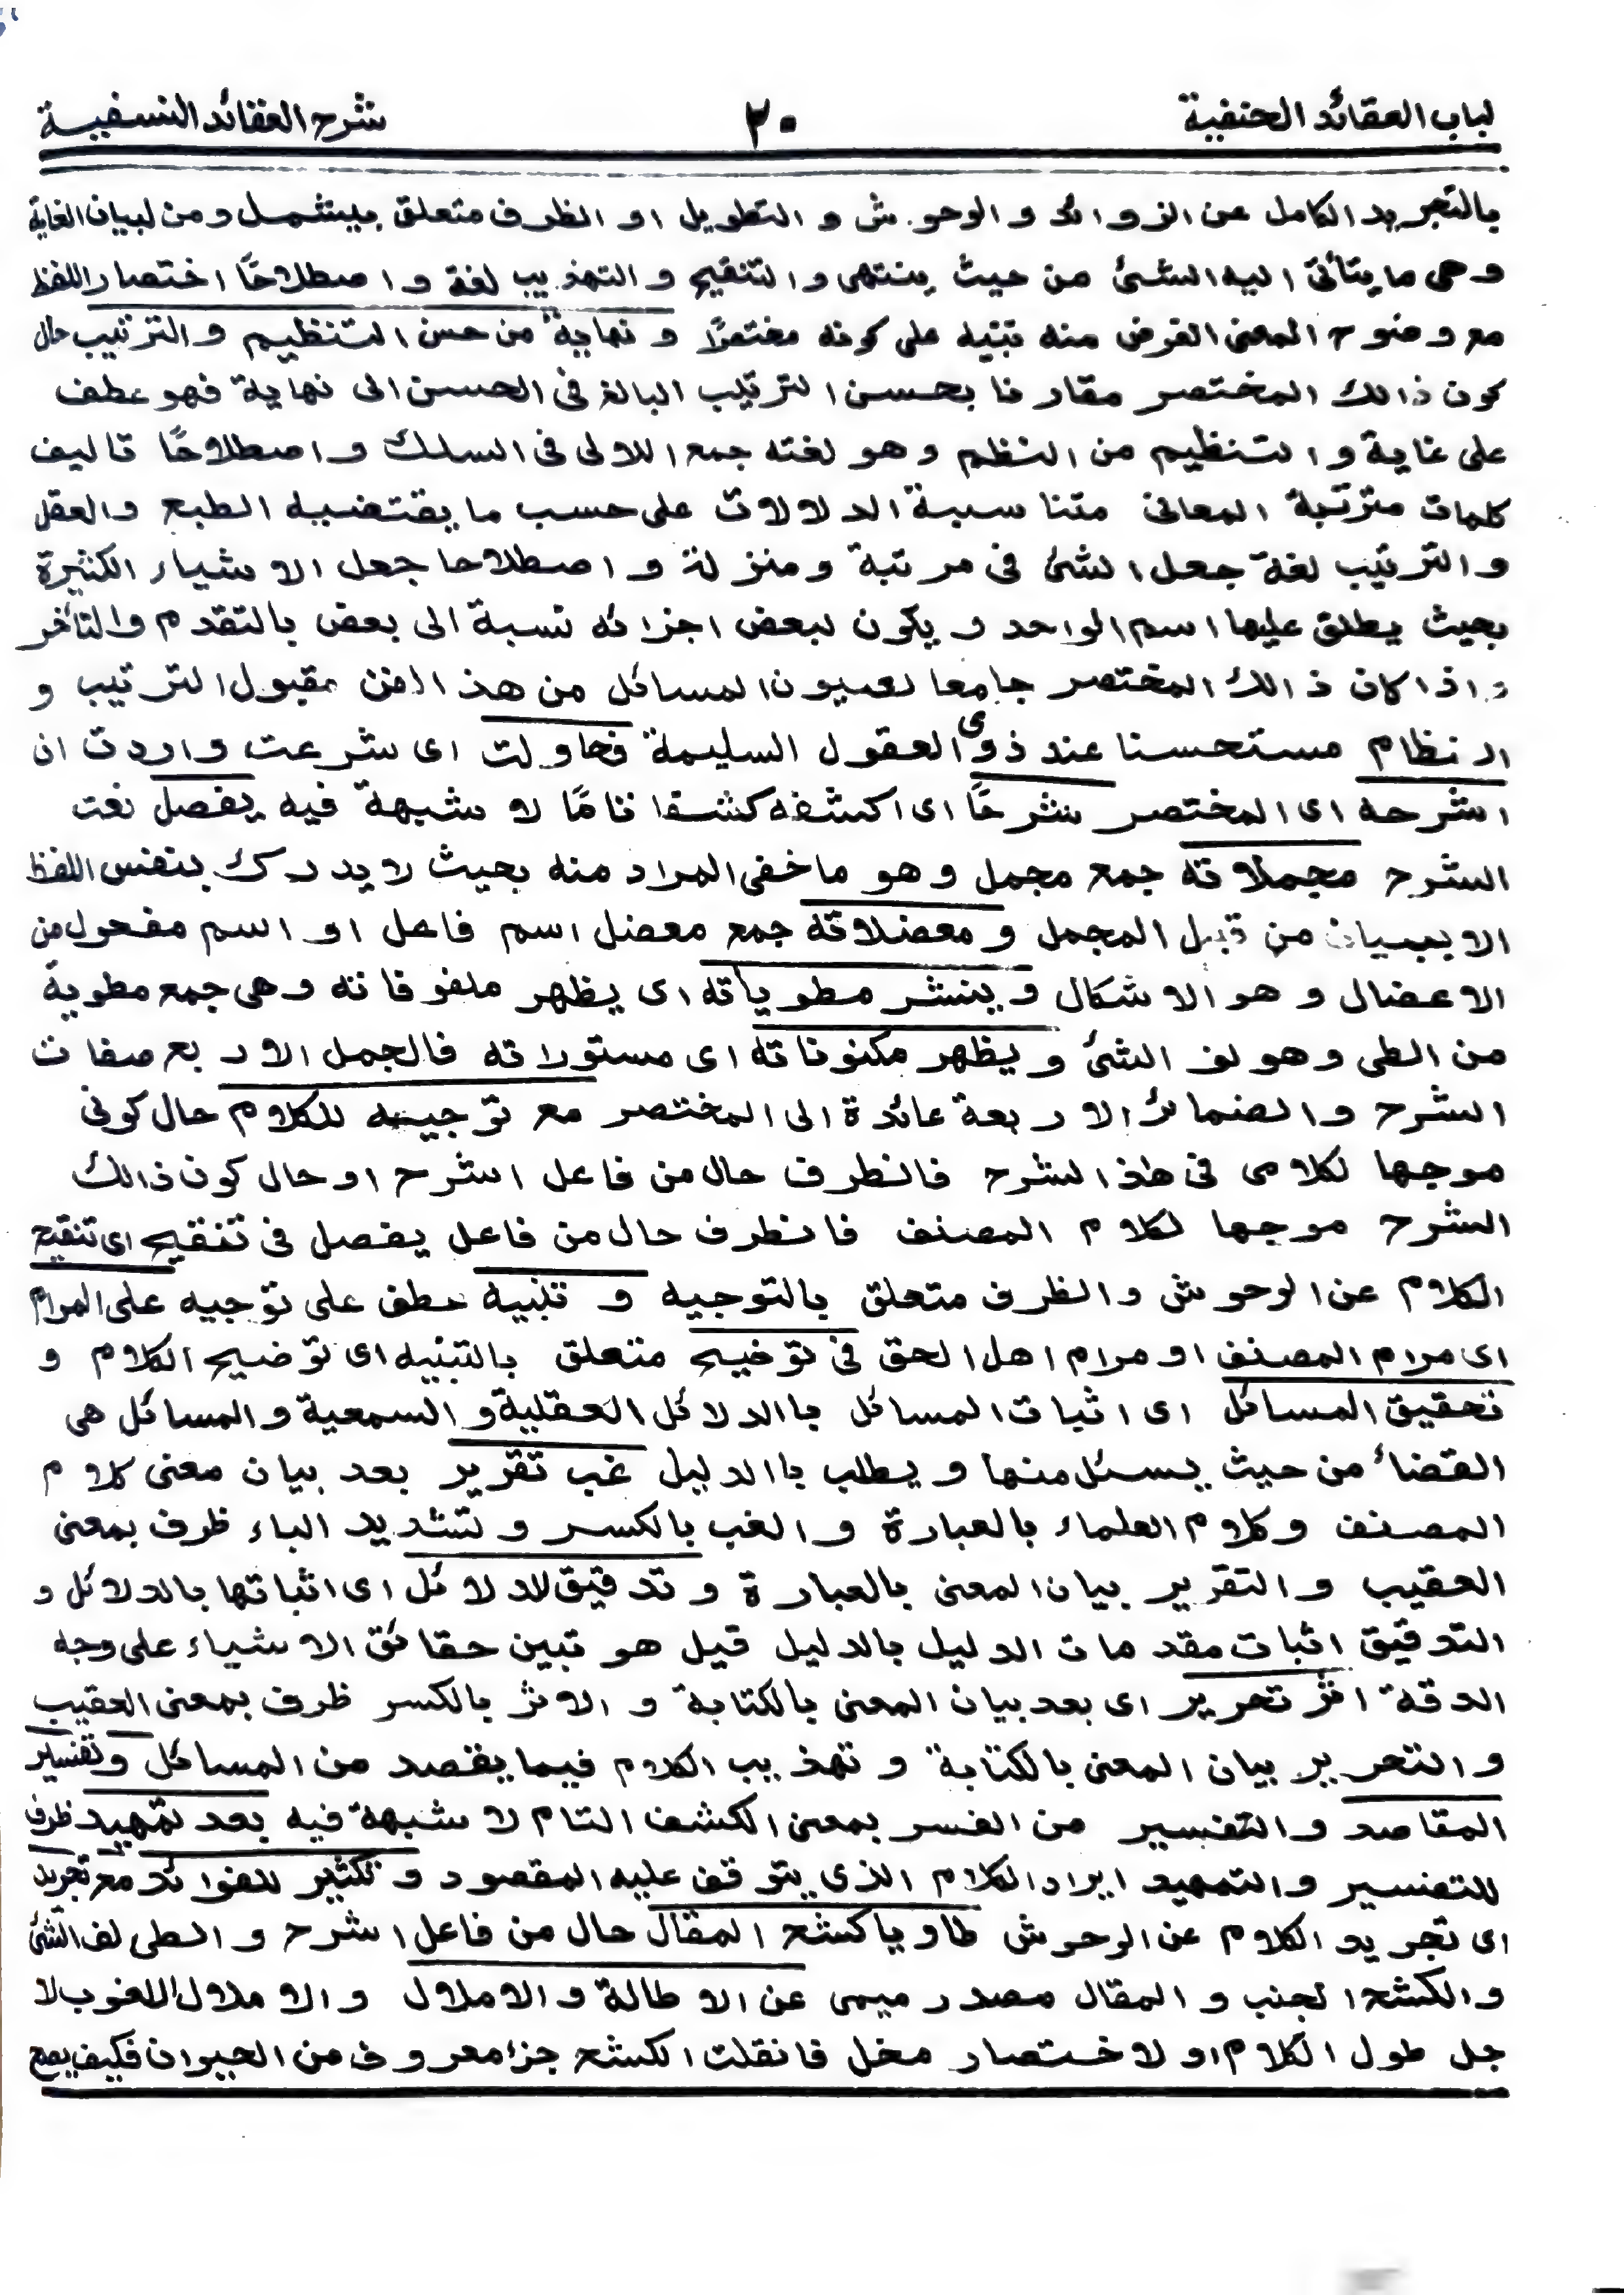 لباب العقائد الحنفية ٢٠ شرح العقائد النسفية
بالتجريد الكامل عن الزوائد والوحوش و التطويل او الظرف متعلق بيشمل و من لبيان الغاية
وهى ما يتأتى اليه الشئ من حيث ينتهى والتنقيح و التهذيب لغة و اصطلاحًا اختصار اللفظ
مع وضوح المعنى الغرض منه تنبيه على كونه مختصرًا و نهاية من حسن التنظيم و الترتيب حال
كون ذالك المختصر مقارنا بحسن الترتيب البالغ فى الحسن الى نهاية فهو عطف
على غاية و التنظيم من النظم وهو لغته جمع اللالى فى السلك و اصطلاحًا تاليف
كلمات مترتبة المعانى متناسبة الدلالات على حسب ما يقتضيه الطبع والعقل
و الترتيب لغة جعل الشئ فى مرتبة ومنزلة و اصطلاحا جعل الاشياء الكثيرة
بحيث يطلق عليها اسم الواحد و يكون لبعض اجزائه نسبة الى بعض بالتقدم والتأخر
و اذا كان ذالك المختصر جامعا لعيون المسائل من هذ الفن مقبول الترتيب و
النظام مستحسنا عند ذوى العقول السليمة فحاولت اى شرعت واردت ان
اشرحه اى المختصر شرحًا اى اكشفه كشفا تامًا لا شبهة فيه يفصل نعت
الشرح مجملاته جمع مجمل وهو ما خفى المراد منه بحيث لا يدرك بنفس اللفظ
الا ببيان من قبل المجمل و معضلاته جمع معضل اسم فاعل او اسم مفعول من
الاعضال و هو الاشكال و ينشر مطوياته اى يظهر ملفوفاته وهى جمع مطوية
من الطى وهو لف الشئ و يظهر مكنوناته اى مستوراته فالجمل الاربع صفات
الشرح و الضمائر الاربعة عائدة الى المختصر مع توجيه للكلام حال كونى
موجها لكلامى فى هذا الشرح فالظرف حال من فاعل اشرح او حال كون ذالك
الشرح موجها لكلام المصنف فالظرف حال من فاعل يفصل فى تنقيح اى تنقيح
الكلام عن الوحوش والظرف متعلق بالتوجيه و تنبيه عطف على توجيه على المرام
اى مرام المصنف او مرام اهل الحق فى توضيح متعلق بالتنبيه اى توضيح الكلام و
تحقيق المسائل اى اثبات المسائل باالدلائل العقلية و السمعية والمسائل هى
القضاء من حيث يسئل منها و يطلب باالدليل غب تقرير بعد بيان معنى كلام
المصنف وكلام العلماء بالعبارة و الغب بالكسر و تشديد الباء ظرف بمعنى
العقيب و التقرير بيان المعنى بالعبارة و تدقيق للدلائل اى اثباتها بالدلائل و
التدقيق اثبات مقدمات الدليل بالدليل قيل هو تبين حقائق الاشياء على وجه
الدقة اثر تحرير اى بعد بيان المعنى بالكتابة و الاثر بالكسر ظرف بمعنى العقيب
و التحرير بيان المعنى بالكتابة و تهذيب الكلام فيما يقصد من المسائل وتفسير
المقاصد و التفسير من الفسر بمعنى الكشف التام لا شبهة فيه بعد تمهيد ظرف
للتفسير والتمهيد ايراد الكلام الذى يتوقف عليه المقصود و تكثير للفوائد مع تجريد
اى تجريد الكلام عن الوحوش طاويا كشح المقال حال من فاعل اشرح و الطى لف الشئ
والكشح الجنب و المقال مصدر ميمى عن الاطالة و الاملال و الاملال اللغوب لا
جل طول الكلام او لاختصار مخل فانقلت الكشح جزأ معروف من الحيوان فكيف يصح